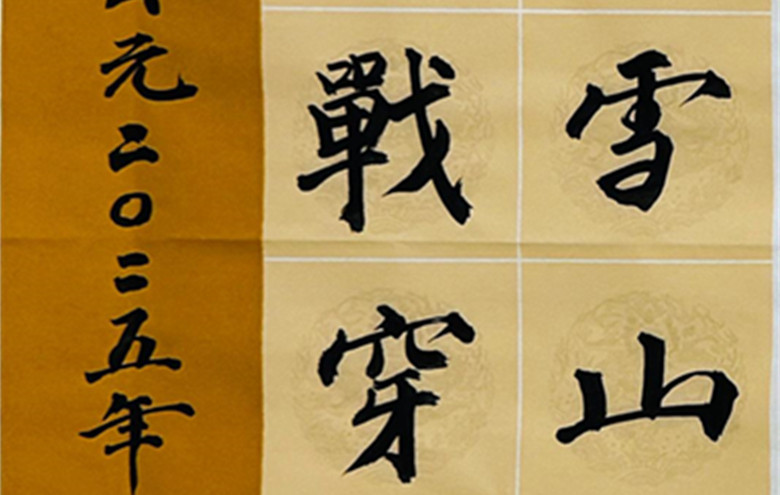 雪山
戰穿
元二〇二五年